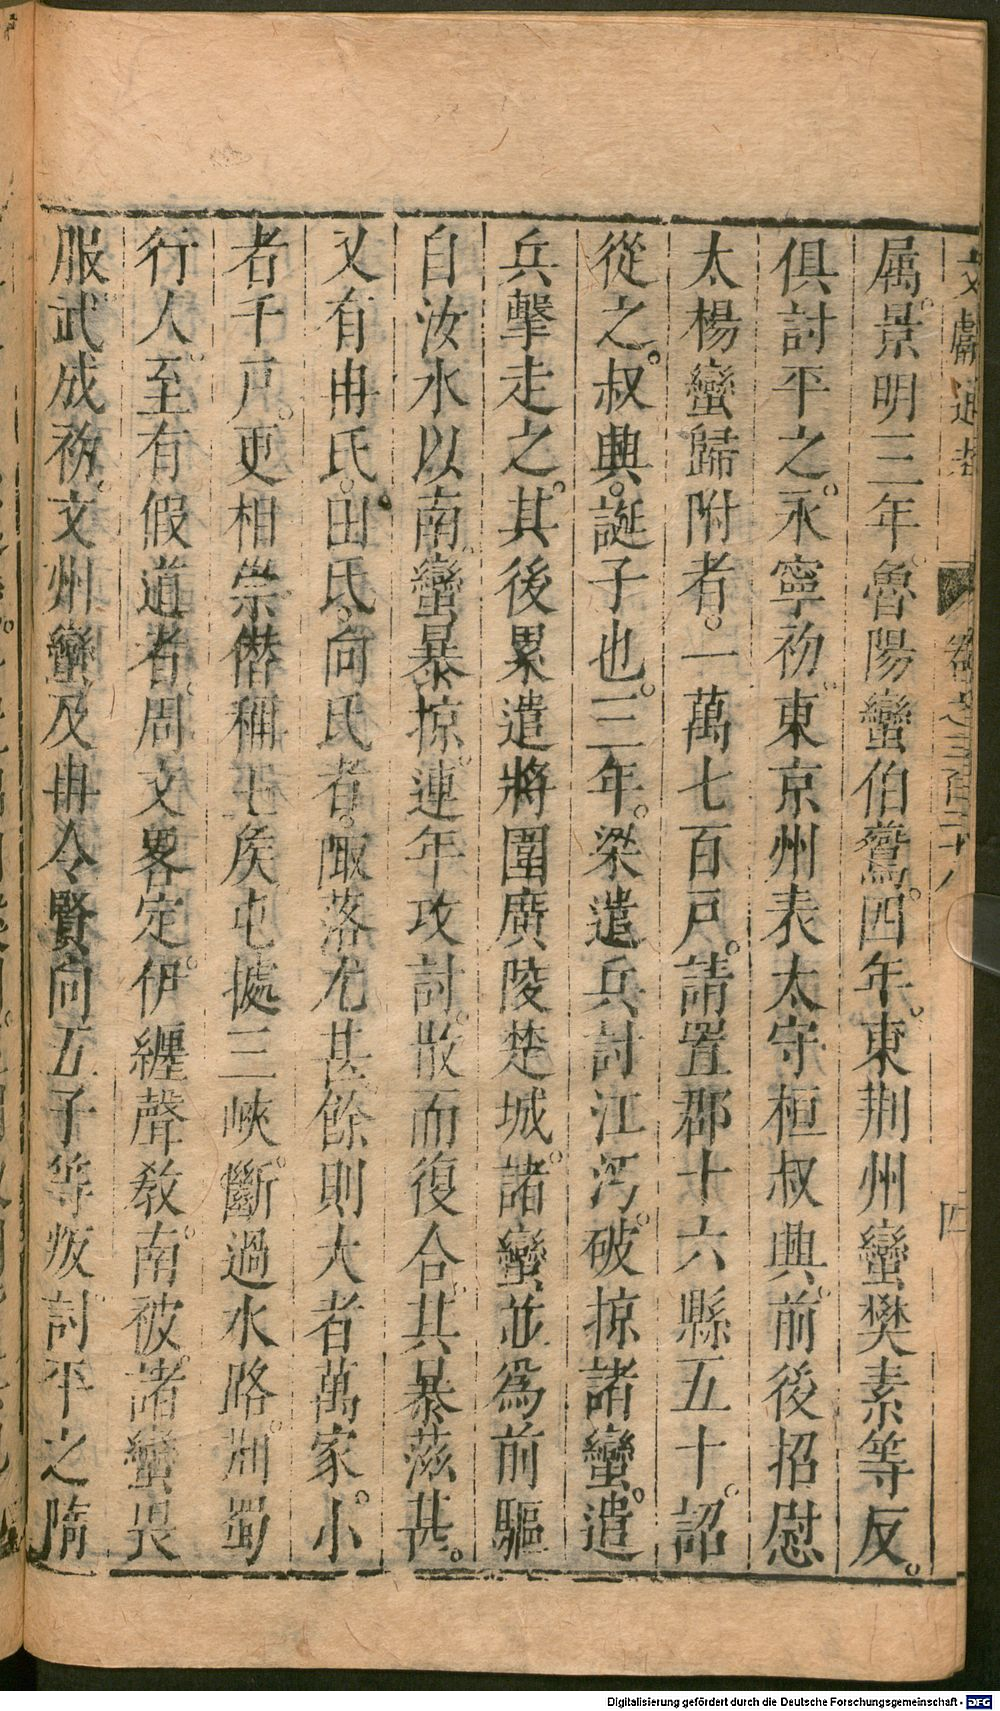 文獻通考 卷之三百二十八 四
属景明三年。魯陽蠻伯鴦。四年。東荆州蠻樊素等反。
俱討平之。永寧初。東京州表太守桓叔興。前後招慰
太楊蠻歸附者。一萬七百戸。請置郡十六縣五十。詔
從之。叔興。誕子也。三年。梁遣兵討江沔。破掠諸蠻。遣
兵擊走之。其後累遣將圍廣陵楚城。諸蠻並爲前驅
自汝水以南。蠻暴掠。連年攻討。散而復合。其暴滋甚。
又有冉氏。田氏。向氏者。陬落尤甚餘則大者萬家。小
者千戸。更相崇僭稱王侯屯據三峽。斷過水路。荆蜀
行人。至有假道者。周文畧定。伊纏聲敎。南被。諸蠻畏
服。武成初。文州蠻及冉令賢向五子等叛。討平之隋
Digitalisierung gefördert durch die Deutsche Forschungsgemeinschaft - DFG